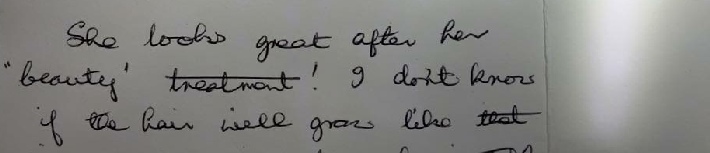 She looks great after her
"beauty" treatment! I don't know
if the hair will grow like that